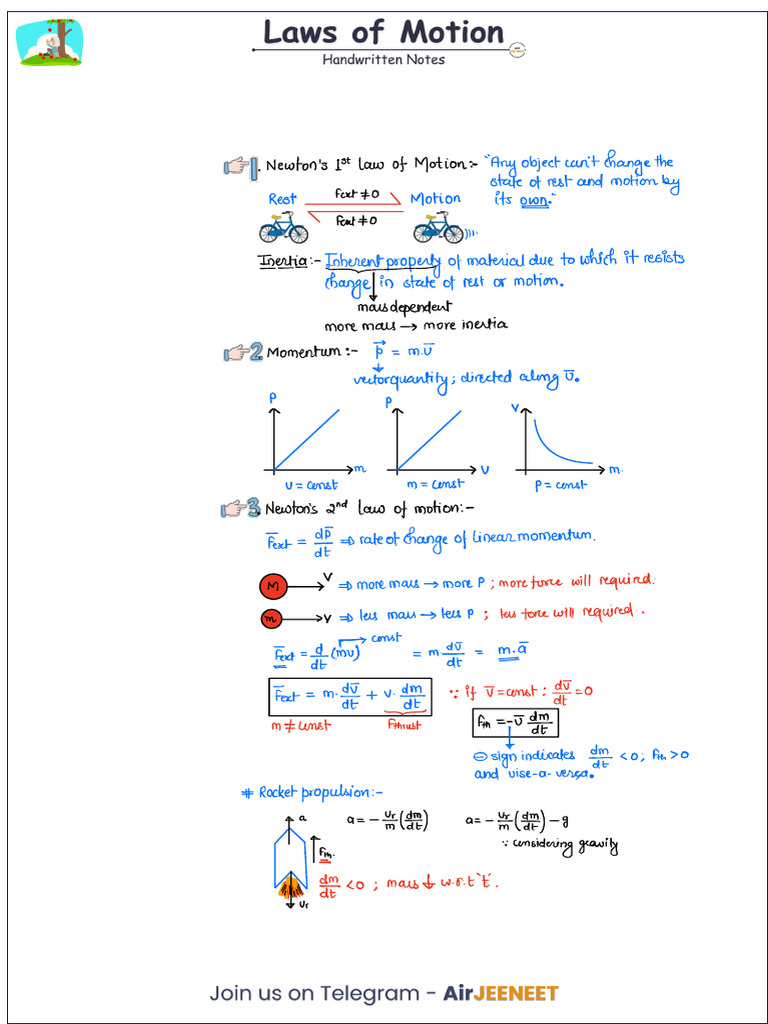 Laws of Motion
Handwritten Notes
1. Newton's 1st law of Motion:- "Any object can't change the
state of rest and motion by
its own."
Rest Fext ≠ 0 Motion
Fext ≠ 0
Inertia:- Inherent property of material due to which it resists
change in state of rest or motion.
mass dependent
more mass → more inertia
2. Momentum:- p⃗ = m.v̅
vector quantity; directed along v̅.
P P V
m V m.
v = const m = const P = const
3. Newton's 2nd law of motion:-
F̅ext = dp̅/dt ⇒ rate of change of linear momentum.
M V ⇒ more mass → more P ; more force will required.
m V ⇒ less mass → less P ; less force will required.
const
F̅ext = d/dt (mv) = m.dv̅/dt = m.a̅
F̅ext = m.dv̅/dt + v.dm/dt ∵ if V̅ = const : dv̅/dt = 0
m ≠ const Fthrust Fth = -v̅ dm/dt
⊖ sign indicates dm/dt < 0; Fth > 0
and vise-a-versa.
# Rocket propulsion:-
a a = - vr/m (dm/dt) a = - vr/m (dm/dt) - g
Fth. ∵ considering gravity
dm/dt < 0 ; mass ↓ w.r.t 't'.
vr
Join us on Telegram - AirJEENEET